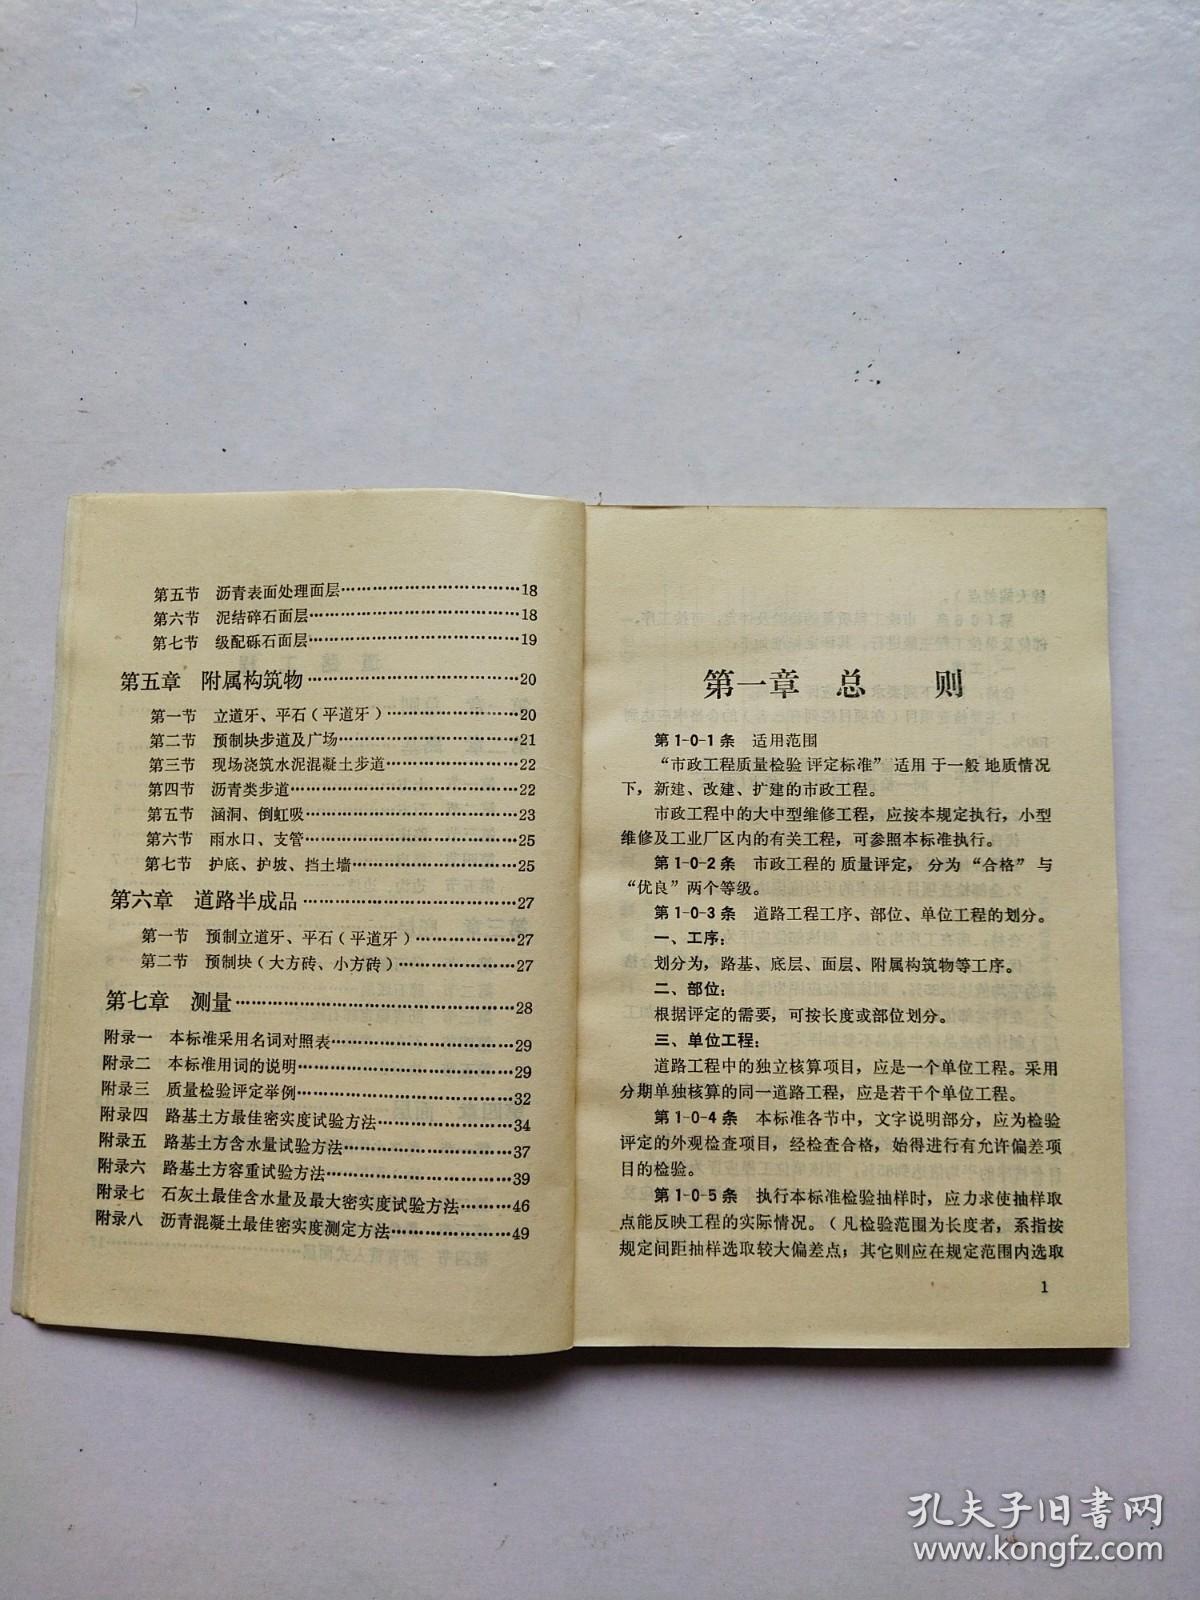 第五节 沥青表面处理面层……………………………18
第六节 泥结碎石面层……………………………18
第七节 级配砾石面层……………………………19
第五章 附属构筑物……………………………20
第一节 立道牙、平石(平道牙)……………………20
第二节 预制块步道及广场……………………21
第三节 现场浇筑水泥混凝土步道……………………22
第四节 沥青类步道……………………………22
第五节 涵洞、倒虹吸……………………………23
第六节 雨水口、支管……………………………25
第七节 护底、护坡、挡土墙……………………25
第六章 道路半成品……………………………27
第一节 预制立道牙、平石(平道牙)………………27
第二节 预制块(大方砖、小方砖)………………27
第七章 测量……………………………28
附录一 本标准采用名词对照表……………………29
附录二 本标准用词的说明……………………29
附录三 质量检验评定举例……………………32
附录四 路基土方最佳密实度试验方法………………34
附录五 路基土方含水量试验方法……………………37
附录六 路基土方容重试验方法……………………39
附录七 石灰土最佳含水量及最大密实度试验方法………46
附录八 沥青混凝土最佳密实度测定方法………………49
第一章 总 则
第1-0-1条 适用范围
“市政工程质量检验评定标准”适用于一般地质情况
下，新建、改建、扩建的市政工程。
市政工程中的大中型维修工程，应按本规定执行，小型
维修及工业厂区内的有关工程，可参照本标准执行。
第1-0-2条 市政工程的质量评定，分为“合格”与
“优良”两个等级。
第1-0-3条 道路工程工序、部位、单位工程的划分。
一、工序：
划分为，路基、底层、面层、附属构筑物等工序。
二、部位：
根据评定的需要，可按长度或部位划分。
三、单位工程：
道路工程中的独立核算项目，应是一个单位工程。采用
分期单独核算的同一道路工程，应是若干个单位工程。
第1-0-4条 本标准各节中，文字说明部分，应为检验
评定的外观检查项目，经检查合格，始得进行有允许偏差项
目的检验。
第1-0-5条 执行本标准检验抽样时，应力求使抽样取
点能反映工程的实际情况。(凡检验范围为长度者，系指按
规定间距抽样选取较大偏差点；其它则应在规定范围内选取
1
孔夫子旧书网
www.kongfz.com